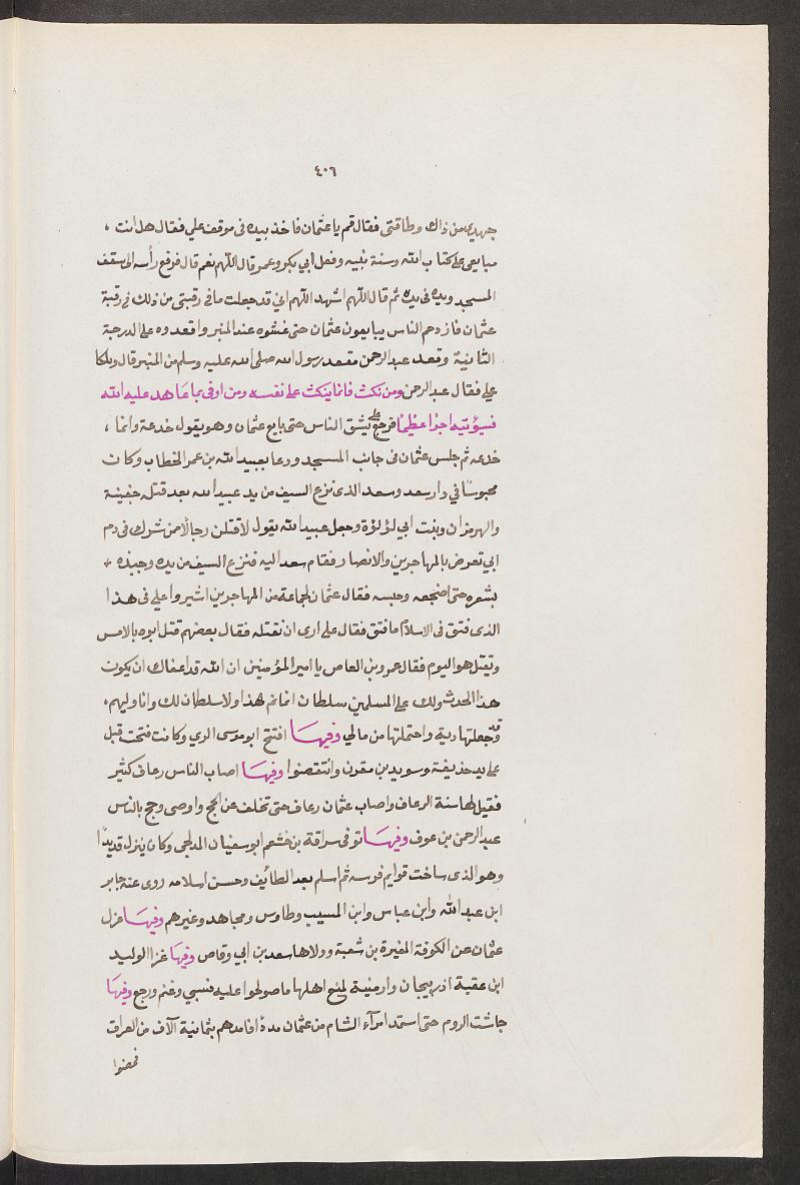 ٤٠٦
جهدي من ذاك وطاقتي فقال قم يا عثمان فاخذ بيده في موقف علي فقال هل انت ،
مبايعي على كتاب الله وسنة نبيه وفعل ابي بكر وعمر قال اللهم نعم قال فرفع رأسه الى سقف
المسجد ويده في يده ثم قال اللهم اشهد اللهم اني قد جعلت ما في رقبتي من ذلك في رقبة
عثمان فازدحم الناس يبايعون عثمان حتى غشوه عند المنبر واقعدوه على الدرجة
الثانية وقعد عبد الرحمن مقعد رسول الله صلى الله عليه وسلم من المنبر قال وتلكا
علي فقال عبد الرحمن ومن نكث فانما ينكث على نفسه ومن اوفى بما عاهد عليه الله
فسيؤتيه اجرًا عظيمًا فرجع علي يشق الناس حتى بايع عثمان وهو يقول خدعة وانما ،
خدعه ثم جلس عثمان في جانب المسجد ودعا بعبيد الله بن عمر الخطاب وكان
محبوسًا في دار سعد وسعد الذي نزع السيف من يد عبيد الله بعد قتله جفينة
والهرمزان وبنت ابي لؤلؤة وجعل عبيد الله يقول لاقتلن رجالًا ممن شرك في دم
ابي تعرض بالمهاجرين والانصار فقام سعد اليه فنزع السيف من يده وجبذه +
بشعره حتى اضجعه وحبسه فقال عثمان لجماعة من المهاجرين اشيروا علي في هذا
الذي فتق في الاسلام ما فتق فقال علي ارى ان نقتله فقال بعضهم قتل ابوه بالامس
ويقتل هو اليوم فقال عمرو بن العاص يا امير المؤمنين ان الله قد اعفاك ان يكون
هذا الحدث ولك على المسلمين سلطان انما تم هذا ولا سلطان لك وانا وليهم ،
وقد جعلتها دية واحتملتها من مالي وفيها افتتح ابو موسى الري وكانت فتحت قبل
على يد حذيفة وسويد بن مقرن وانتقضوا وفيها اصاب الناس رعاف كثير
فقيل لها سنة الرعاف واصاب عثمان رعاف حتى تخلف عن الحج واوصى وحج بالناس
عبد الرحمن بن عوف وفيها توفى سراقة بن خشعم ابو سفيان المدلجي وكان ينزل قديدًا
وهو الذي ساخت قوايم فرسه ثم اسلم بعد الطائيف وحسن اسلامه روى عنه جابر
ابن عبد الله وابن عباس وابن المسيب وطاوس ومجاهد وغيرهم وفيها عزل
عثمان عن الكوفة المغيرة بن شعبة وولاها سعد بن ابي وقاص وفيها غزا الوليد
ابن عقبة اذربيجان وارمنية لمنع اهلها ما صولحوا عليه فسبي وغنم ورجع وفيها
جاشت الروم حتى استمد امرآء الشام من عثمان مددًا فامدهم بثمانية آلاف من العراق
فمضوا